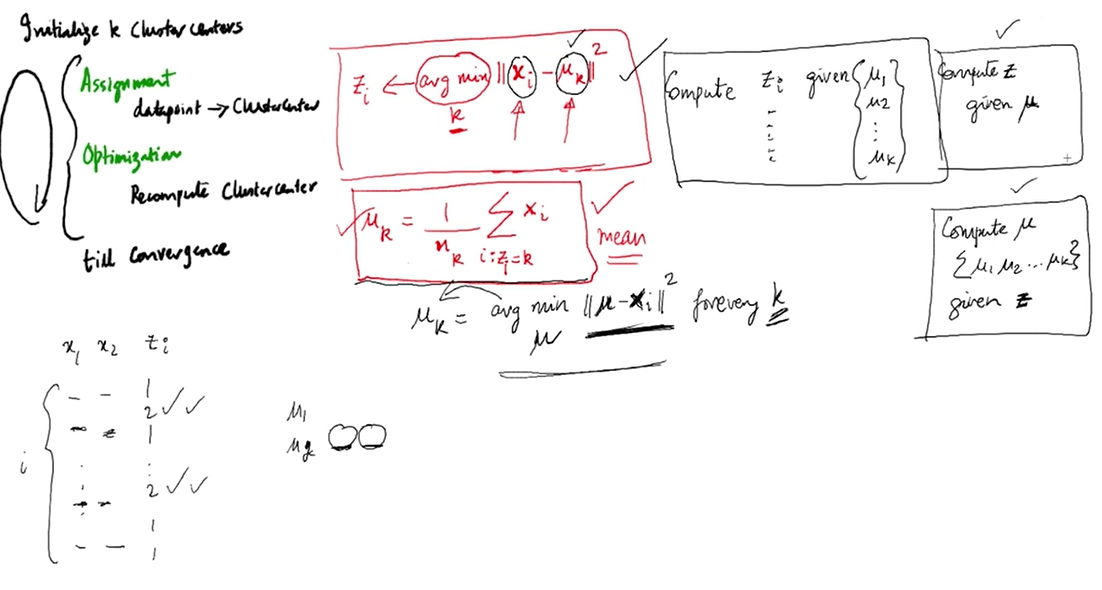 Initialize k Cluster centers
Assignment
datapoint → Clustercenter
Optimization
Recompute Clustercenter
till convergence
z_i ← arg min_k ||x_i - μ_k||^2
μ_k = 1/n_k Σ_{i:z_i=k} x_i
mean
μ_k = arg min_μ ||μ-x_i||^2 for every k
Compute z_i given {μ_1
μ_2
⋮
μ_k}
Compute z
given μ
Compute μ
{μ_1 μ_2 ... μ_k}
given z
x_1 x_2 z_i
– – 1
2 ✓✓
1
⋮
2 ✓✓
1
– – 1
i
μ_1
μ_2